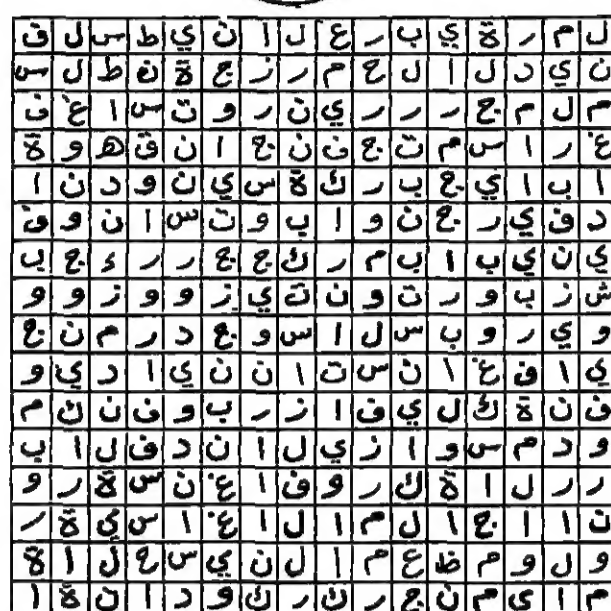 ل م ر ة ي ب ر ع ل ا ن ي ط س ل ف
ن ي د ل ا ل ح م ر ز ج ة ن ط ل س
م ل م ج ر ر ر ي ن ر و ت س ا غ ف
غ ر ا س م ت ج ن ن ج ا ن ق ه و ة
ا ب ا ي ج ب ر ك ة س ي ن و د ن ا
د ف ي ر ج ن و ا ب و ت س ا ن و ق
ي ن ي ب ا ب م ر ك ج ج ر ر ء ج ب
ش ز ب و ر ت و ن ت ي ز و و ز و و
و ي ر و ب س ل ا س و ج د ر م ن ج
ي ا ف غ ا ن س ت ا ن ن ي ا د ي و
ف ن ة ك ل ي ف ا ز ر ب و ف ن ك م
و د م س و ا ز ي ل ا ن د ف ل ا ب
ر ر ل ا ة ك ر و ف ا غ ن س ة ر و
ن ا ا ج ا ل م ا ل ا غ ا س ي ة ر
و ل و م ظ ع م ا ل ن ي س ح ل ا ة
م ا ي م ن ج ر ك ر ك و د ا ن ة ا